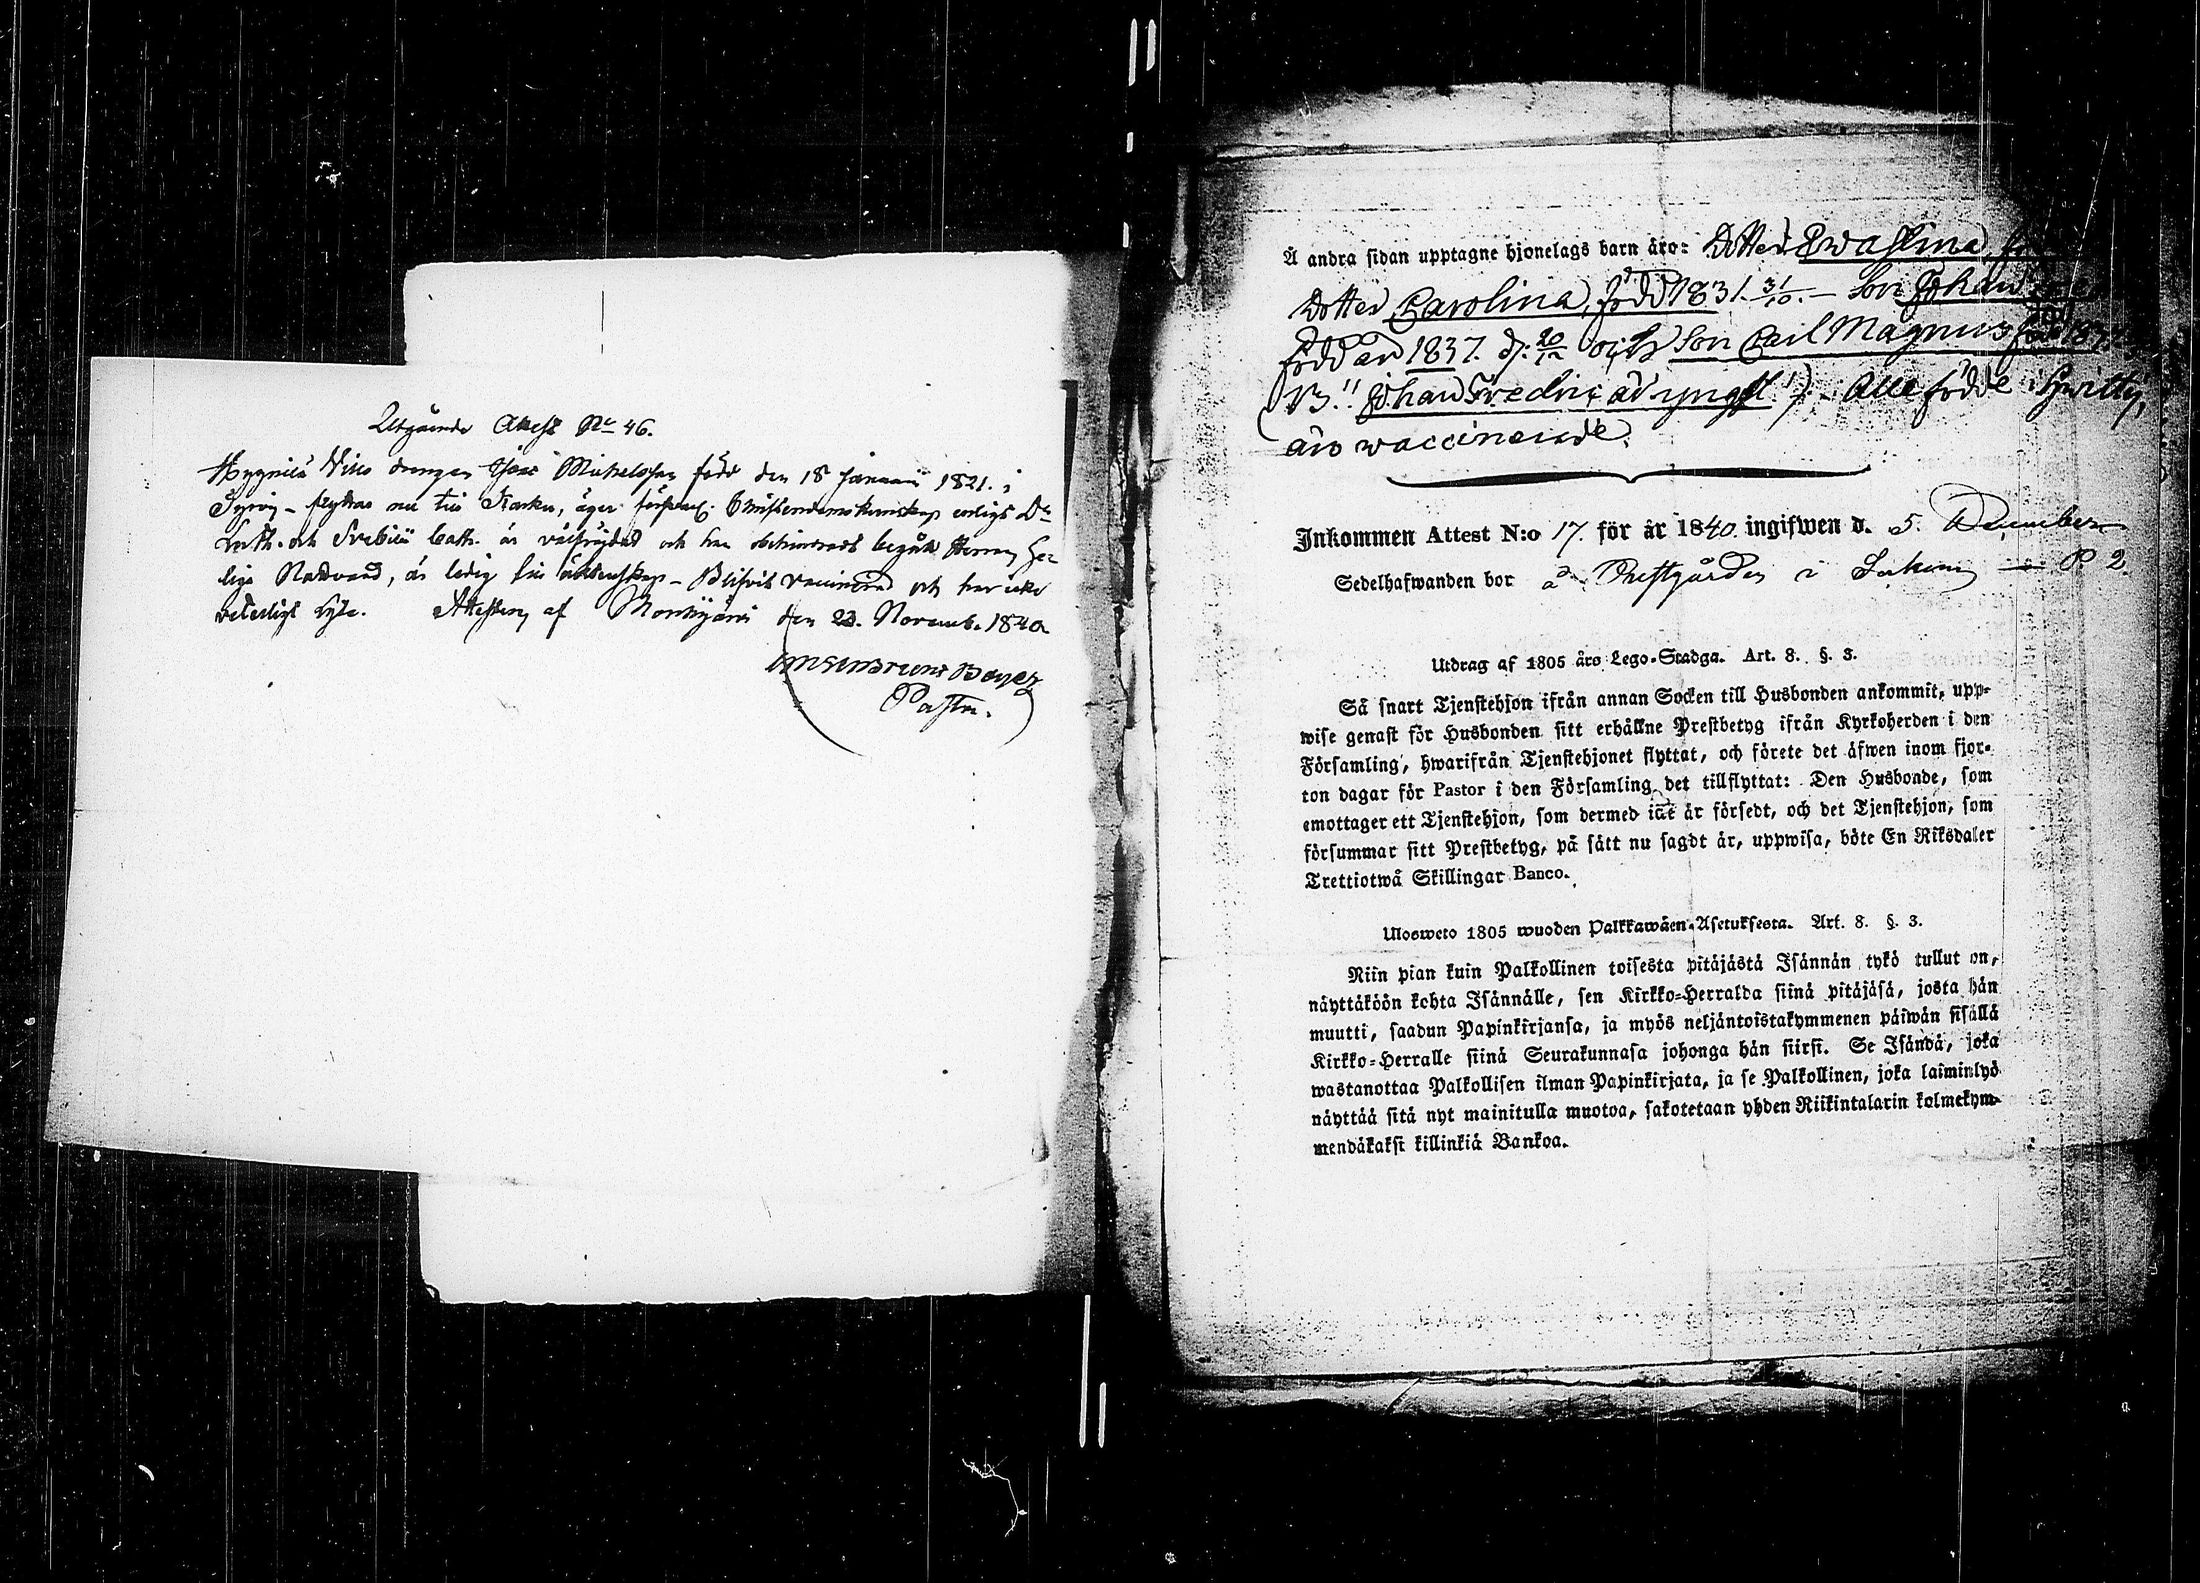 Utgående Attest No 46.
drengen Michelsson född den 18 Januarii 1821. i
flyttar nu till äger Christendomskunskap enligt Dr
Luth. och Svebilii Cath. är och har begått Herrans He-
liga Nattvard, är ledig till äktenskap - Blifvit vaccinerad och har icke
veterligt lyte. Attesterar af den 23. Novemb. 1840
Pastor.
Å andra sidan upptagne hjonelags barn äro: Dotter Eva Stina,
Dotter Carolina, född 1831. 31/10. - Son Johan
född år 1837. d: 20/12 och Son Carl Magnus född
(NB." Johan Fredric är yngst.") - Alle födde i
äro vaccinerade.
Inkommen Attest N:o 17. för år 1840. ingifwen d. 5. December
Sedelhafwanden bor å Prestgården i P 2.
Utdrag af 1805 års Lego-Stadga. Art. 8. §. 3.
Så snart Tjenstehjon ifrån annan Socken till Husbonden ankommit, upp-
wise genast för Husbonden sitt erhållne Prestbetyg ifrån Kyrkoherden i den
Församling, hwarifrån Tjenstehjonet flyttat, och förete det äfwen inom fjor-
ton dagar för Pastor i den Församling det tillflyttat: Den Husbonde, som
emottager ett Tjenstehjon, som dermed icke är försedt, och det Tjenstehjon, som
försummar sitt Prestbetyg, på sätt nu sagdt är, uppwisa, böte En Riksdaler
Trettiotwå Skillingar Banco.
Ulosweto 1805 wuoden Palkkawäen-Asetuksesta. Art. 8. §. 3.
Niin pian kuin Palkollinen toisesta pitäjästä Isännän tykö tullut on,
näyttäköön kohta Isännälle, sen Kirkko-Herralda siinä pitäjäsä, josta hän
muutti, saadun Papinkirjansa, ja myös neljäntoistakymmenen päiwän sisällä
Kirkko-Herralle siinä Seurakunnasa johonga hän siirsi. Se Isändä, joka
wastanottaa Palkollisen ilman Papinkirjata, ja se Palkollinen, joka laiminlyö
näyttää sitä nyt mainitulla muotoa, sakotetaan yhden Riikintalarin kolmekym-
mendäkaksi killinkiä Bankoa.